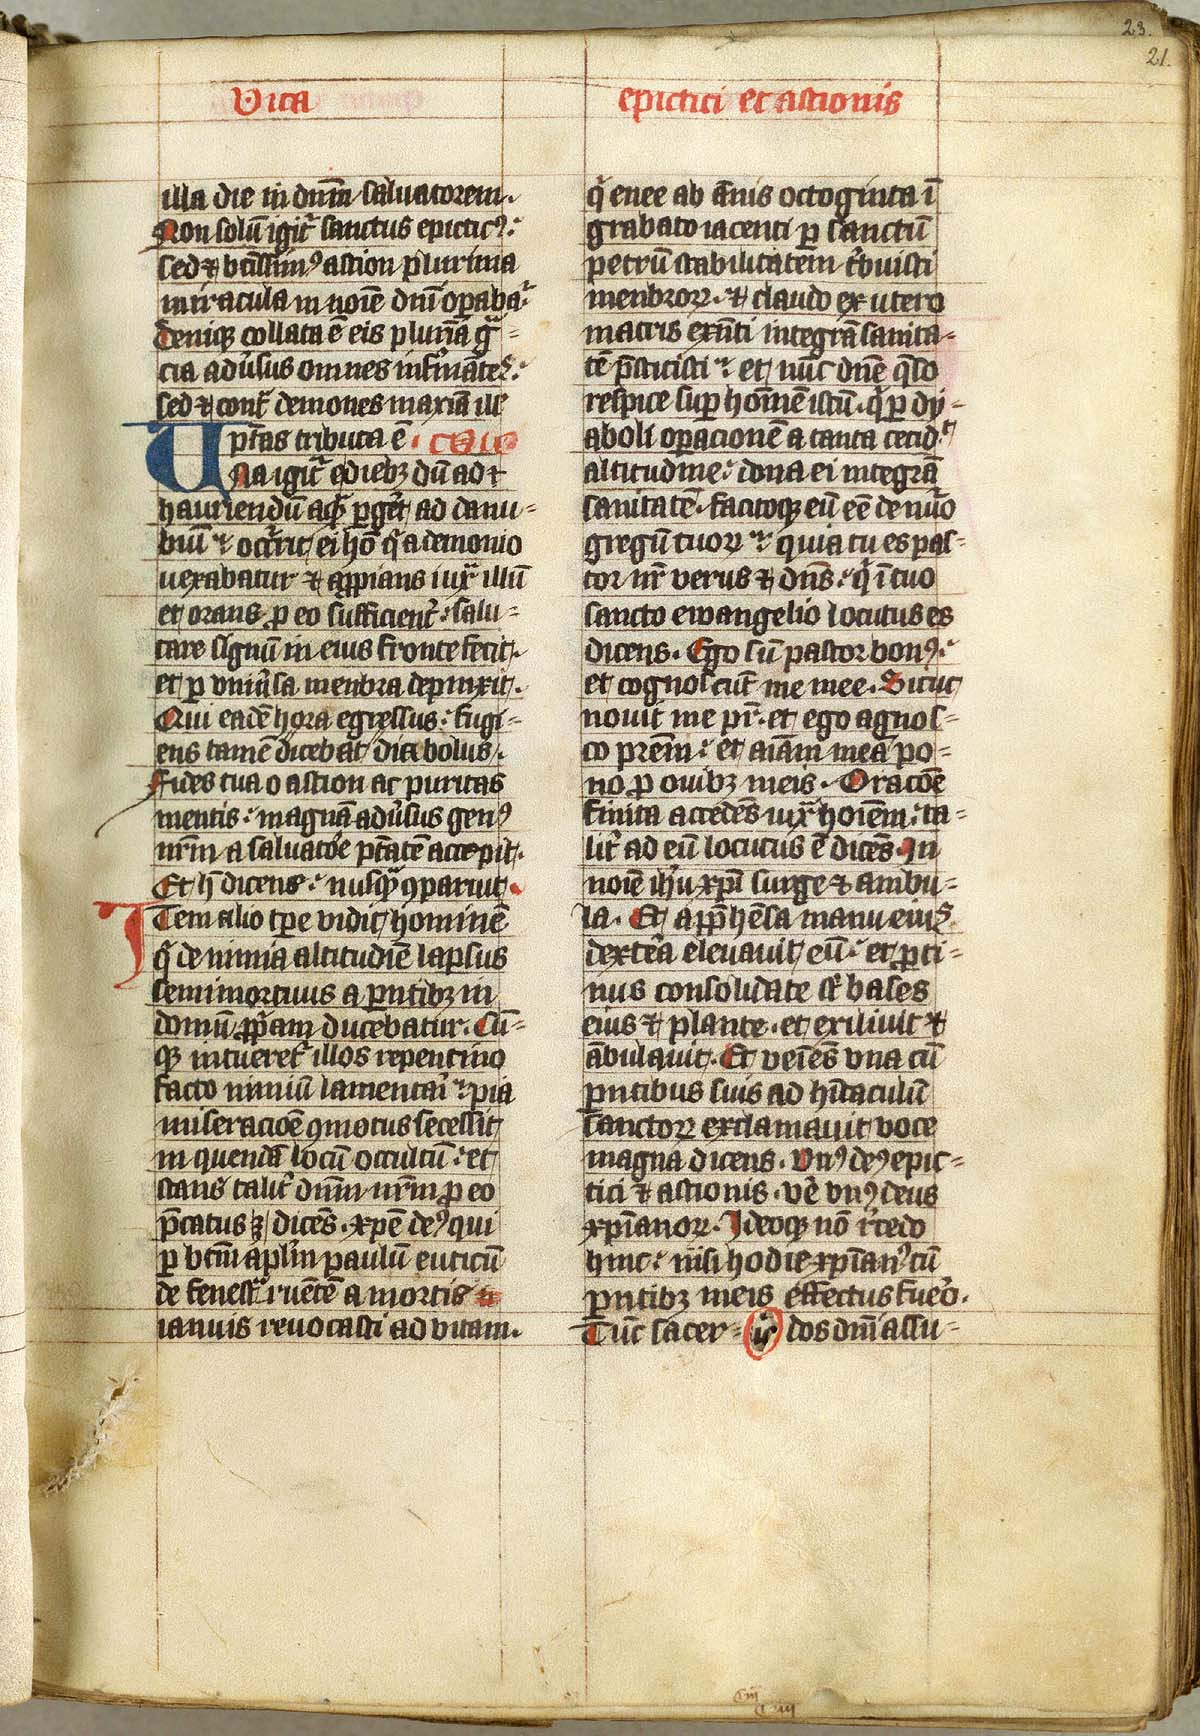 23.
21.
Vita
epictici et astionis
illa die in dn̄m saluatorem.
Non solū igit᷑ sanctus epictic⁹.
sed ⁊ btīssim⁹ astion plurima
miracula in noīe dn̄i oꝑabāt᷑
deniqꝫ collata ē eis plurīa gͣ-
cia adūsus omnes infirmātes.
sed ⁊ cont̄ demones maxīa ill᷑
ptās tributa ē.
Una igit᷑ e diebꝫ dū ad
hauriendū aquā ꝑgēt ad danu-
biū ⁊ occ̄rit ei hō qͥ a demonio
uexabatur ⁊ apꝓpians iuxͣ illū
et orans ꝓ eo sufficient᷑. salu-
tare signū in eius fronte fecit.
et ꝑ vniūsa menbra depinxit.
Qui eadē hora egressus. fugi-
ens tamē dicebat diabolus.
Fides tua o astion ac puritas
mentis. magnā adūsus gen⁹
nr̄m a saluatōe ptātē accepit.
Et h̄ dicens. nusqͣ ꝯparuit.
Item alio tp̄e vidit hominē
qͥ de nimia altitudīe lapsus
semimortuus a parentibꝫ in
domū ꝓpͥam ducebatur. Cū-
qꝫ intueret᷑ illos repentino
facto nimiū lamentari. pia
miseracioē ꝯmotus secessit
in quendā locū occultū. et
stans talit᷑ dn̄m nr̄m ꝓ eo
p̄catus ē dicēs. xp̄e de⁹ qui
ꝑ btm̄ apl̄m paulū euticū
de fenestͣ ruētē a mortis
ianuis reuocasti ad vitam.
qͥ enee ab ānis octoginta ī
grabato iacenti ꝑ sanctū
petrū stabilitatem tͥbuisti
menbroꝝ. ⁊ claudo ex utero
matris exn̄ti integrā sanita-
tē p̄stitisti. et nūc dn̄e qͣso
respice suꝑ hoīnē istū. qͥ ꝑ dy-
aboli oꝑacionē a tanta cecidit
altitudine. dona ei integrā
sanitatē. facitoqꝫ eū eē denuͦo
gregū tuoꝝ. quia tu es pas-
tor nr̄ verus ⁊ dn̄s. qͥ ī tuo
sancto ewangelio locutus es
dicens. Ego sū pastor bon⁹.
et cognoscūt me mee. Sicut
nouit me pr̄. et ego agnos-
co prēm. et aīam meā po-
no ꝓ ouibꝫ meis. Oracōe
finita accedēs iuxͣ hoīem. ta-
lit᷑ ad eū locutus ē dicēs. In
noīe ih̄u xp̄i surge ⁊ ambu-
la. Et app̄hēsa manu eius
dextēa eleuauit eū. et ꝓti-
nus consolidate st̄ bases
eius ⁊ plante. et exiliuit ⁊
ābulauit. Et veīēs vna cū
pn̄tibus suis ad hītaculū
sanctoꝝ exclamauit voce
magna dicens. Vn⁹ de⁹ epic-
tici ⁊ astionis. vē vn⁹ deus
xp̄ianoꝝ. Ideoqꝫ nō rͨedo
hinc. nisi hodie xp̄ian⁹ cū
pn̄tibꝫ meis effectus fueͦ.
Tūc sacer- dos dn̄i assu-